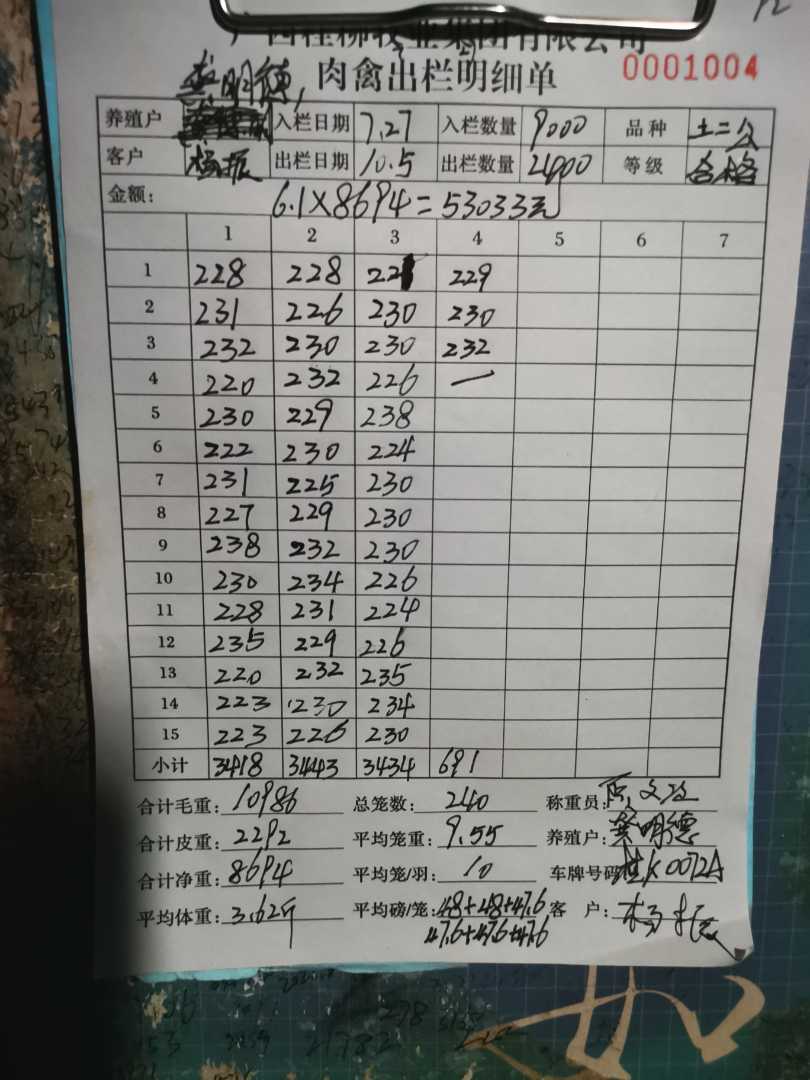 广西桂柳牧业集团有限公司
肉禽出栏明细单 0001004
养殖户 明德 入栏日期 7.27 入栏数量 9000 品种 土二
客户 杨振 出栏日期 10.5 出栏数量 2400 等级 合格
金额: 6.1×8694=53033元
1 2 3 4 5 6 7
1 228 228 229
2 231 226 230 230
3 232 230 230 232
4 220 232 226 一
5 230 229 238
6 222 230 224
7 231 225 230
8 227 229 230
9 238 232 230
10 230 234 226
11 228 231 224
12 235 229 226
13 220 232 235
14 223 230 234
15 223 226 230
小计 3418 3443 3434 691
合计毛重: 10986 总笼数: 240 称重员:
合计皮重: 2292 平均笼重: 9.55 养殖户: 明德
合计净重: 8694 平均笼/羽: 10 车牌号码: 桂K0072A
平均体重: 3.62斤 平均磅/笼: 48+48+47.6 客 户: 杨振
47.6+47.6+47.6